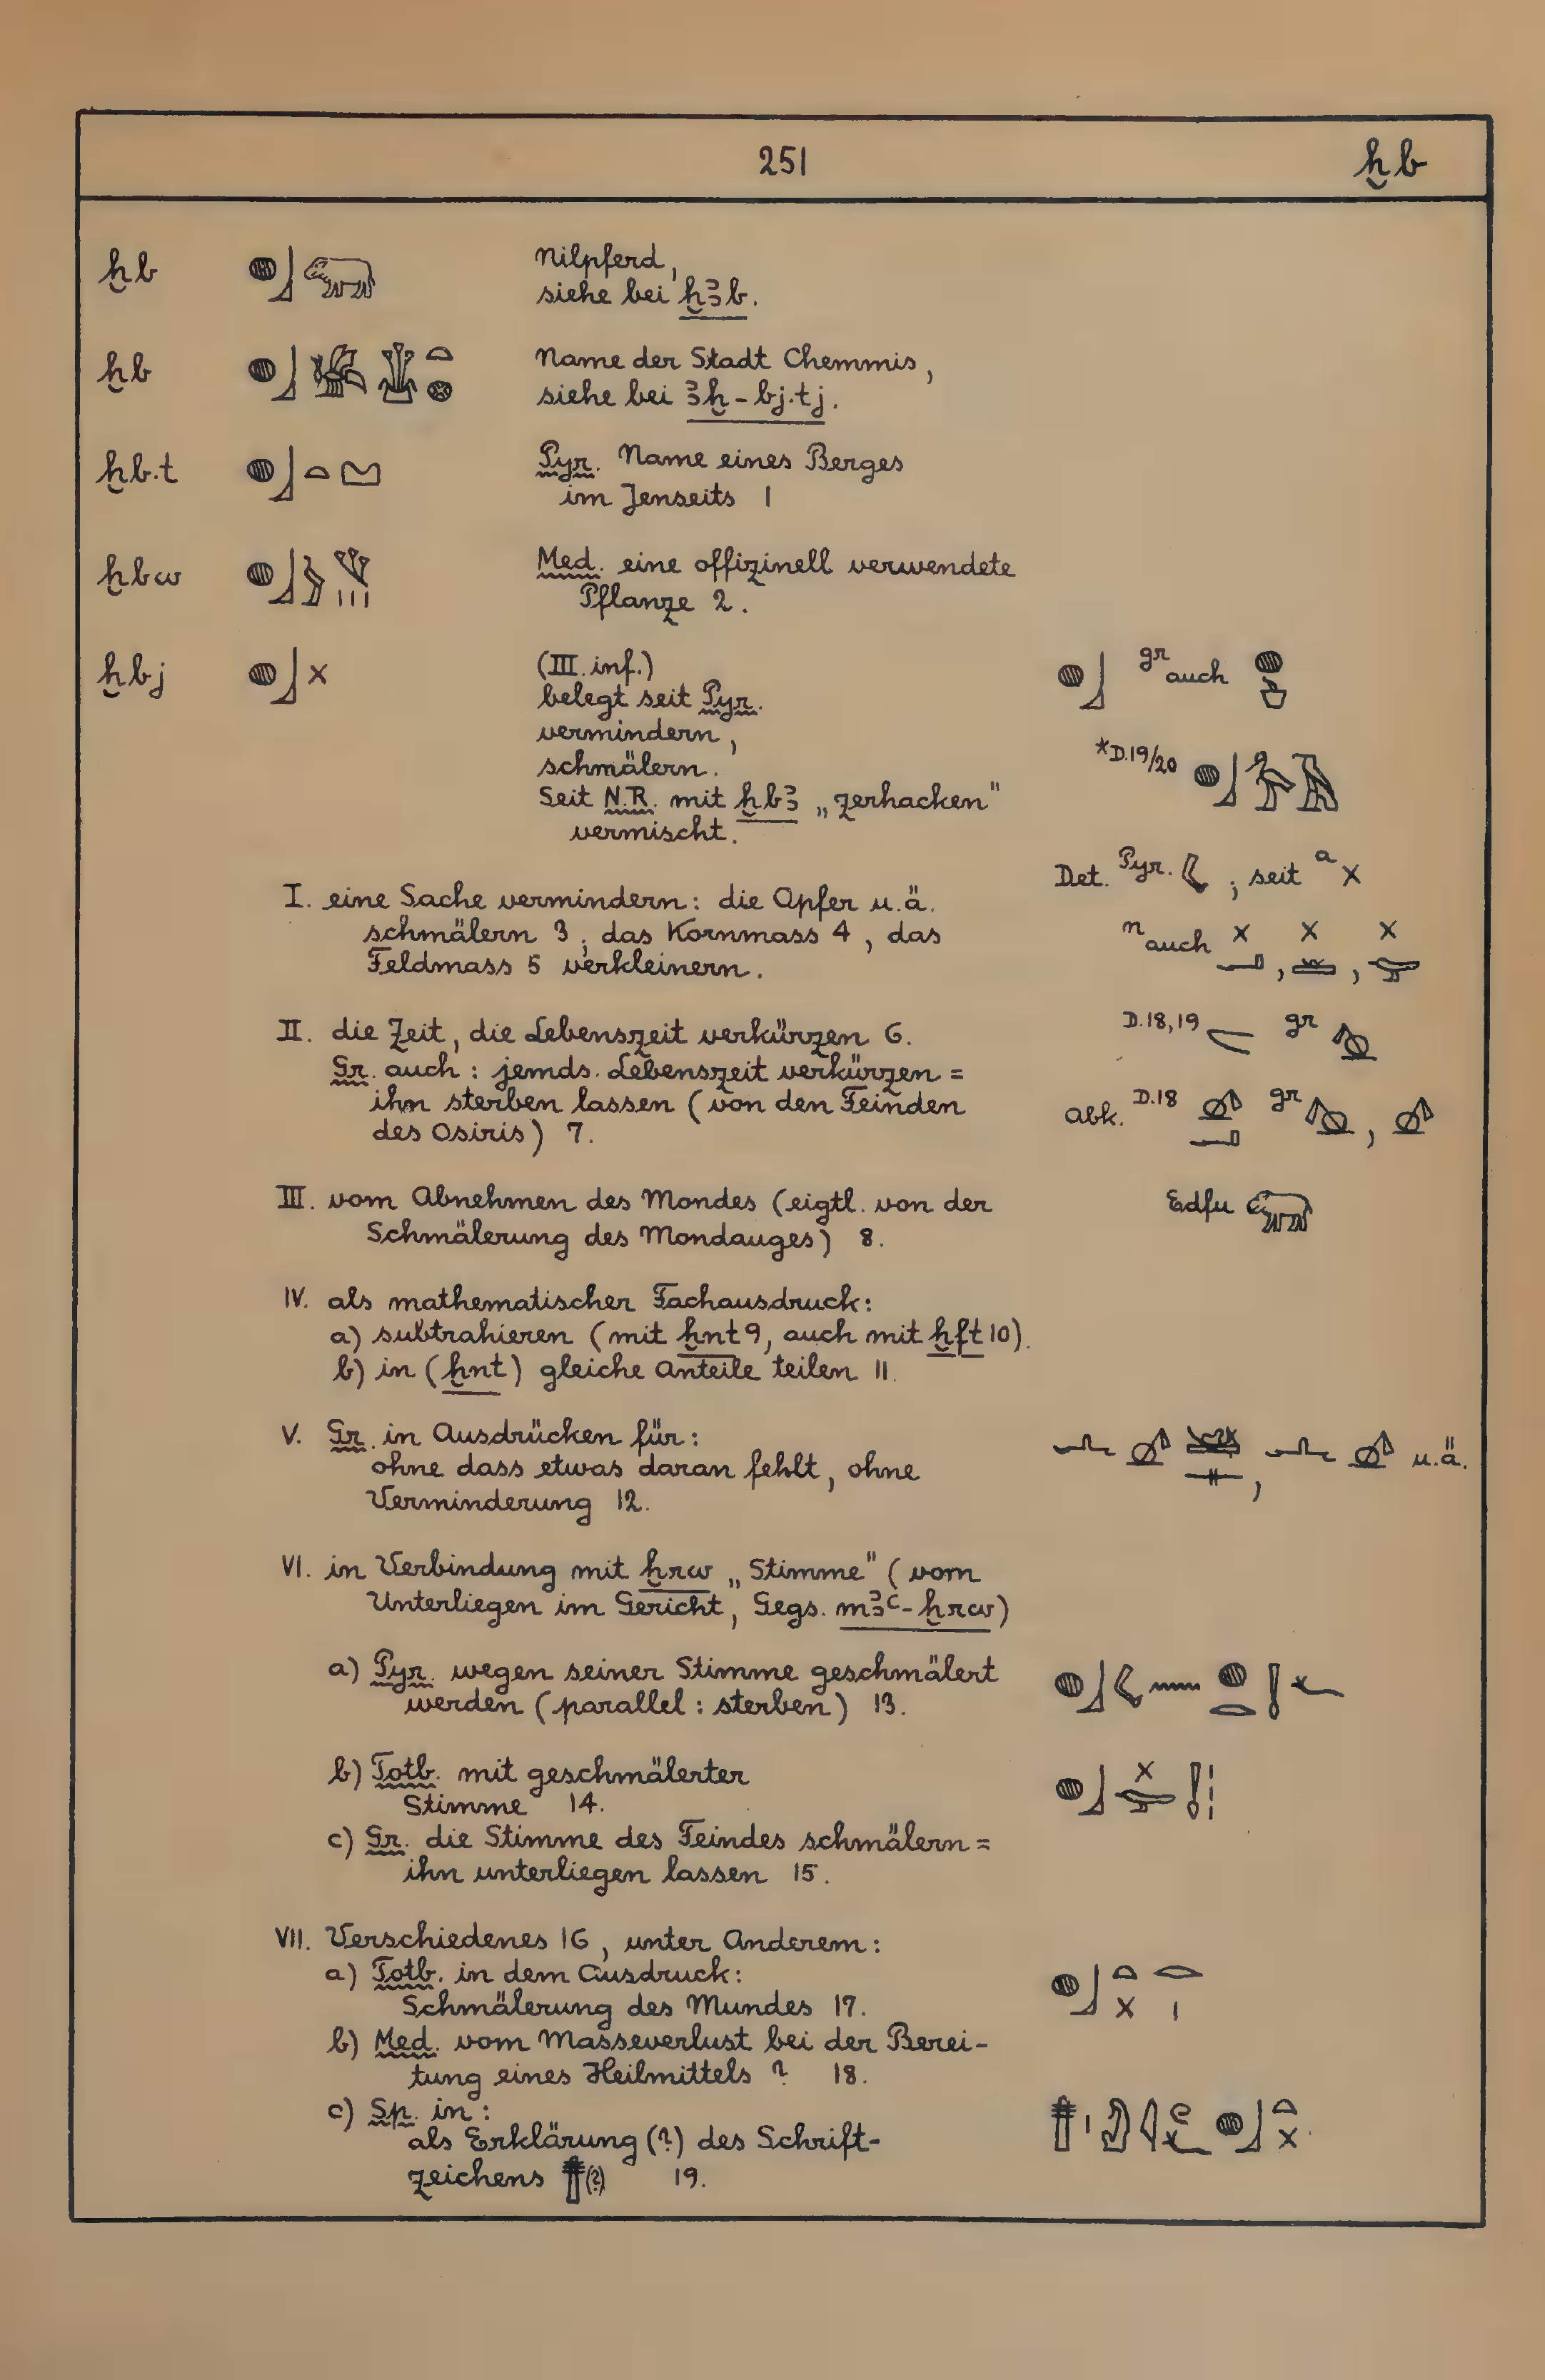 251 ḫb
ḫb Nilpferd,
siehe bei ḫꜣb.
ḫb Name der Stadt Chemmis,
siehe bei ꜣḫ-bj.tj.
ḫb.t Pyr. Name eines Berges
im Jenseits 1
ḫbw Med. eine offizinell verwendete
Pflanze 2.
ḫbj (III. inf.)
belegt seit Pyr.
vermindern,
schmälern.
Seit N.R. mit ḫbꜣ „zerhacken"
vermischt.
gr auch
*D.19/20
Det. Pyr. ; seit a
n auch , ,
D.18,19 gr
Abk. D.18 gr ,
Edfu
I. eine Sache vermindern: die Opfer u.ä.
schmälern 3, das Kornmass 4, das
Feldmass 5 verkleinern.
II. die Zeit, die Lebenszeit verkürzen 6.
Gr. auch: jemds. Lebenszeit verkürzen =
ihn sterben lassen (von den Feinden
des Osiris) 7.
III. vom Abnehmen des Mondes (eigtl. von der
Schmälerung des Mondauges) 8.
IV. als mathematischer Fachausdruck:
a) subtrahieren (mit ḫnt 9, auch mit ḫft 10).
b) in (ḫnt) gleiche Anteile teilen 11.
V. Gr. in Ausdrücken für:
ohne dass etwas daran fehlt, ohne
Verminderung 12.
, u.ä.
VI. in Verbindung mit ḫrw „Stimme" (vom
Unterliegen im Gericht, Gegs. mꜣꜥ-ḫrw)
a) Pyr. wegen seiner Stimme geschmälert
werden (parallel: sterben) 13.
b) Totb. mit geschmälerter
Stimme 14.
c) Gr. die Stimme des Feindes schmälern =
ihn unterliegen lassen 15.
VII. Verschiedenes 16, unter Anderem:
a) Totb. in dem Ausdruck:
Schmälerung des Mundes 17.
b) Med. vom Masseverlust bei der Berei-
tung eines Heilmittels ? 18.
c) Sp. in:
als Erklärung (?) des Schrift-
zeichens (?) 19.